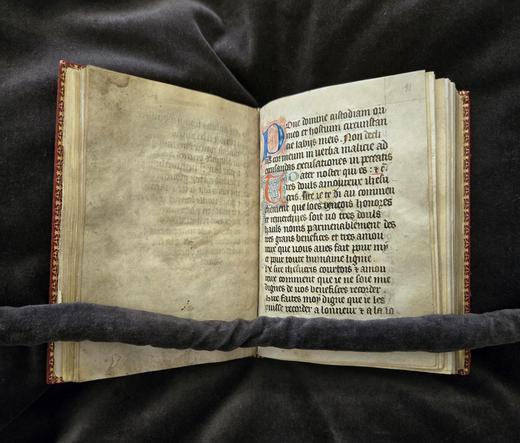 Pone domine custodiam ori
meo et hostium circunstan
cie labijs meis. Non decli
nes cor meum in verba malicie ad
excusandas excusationes in peccatis
Pater noster qui es
Tres douls amoureux ihesu
cris. Aire ie te di au commen
cement que loes benois honores
et remerchies soit vo tres douls
hauls noms parmenablement des
tres grans benefices et tres amou
reux que vous aues fait pour my
et pour toute humaine ligne.
De sire ihesucris courtois et amou
reux comment que ie ne soie mie
dignes de vos benefices recorder.
Sire faites moy digne que ie les
puisse recorder a lonneur et a la lo